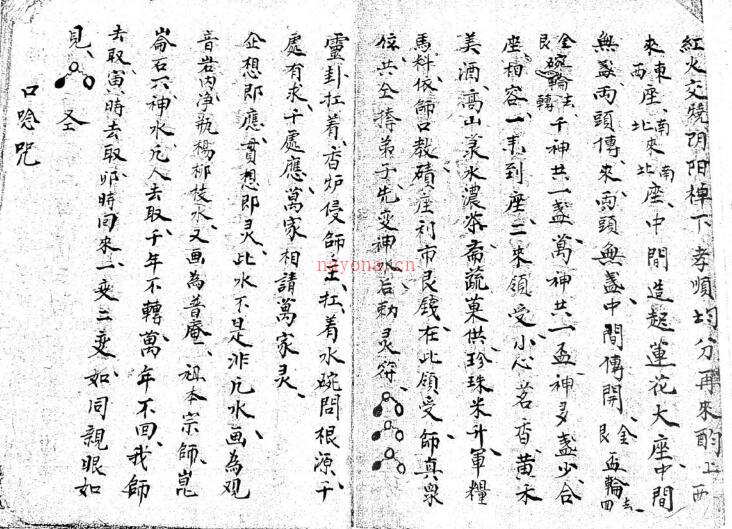 紅火交驍阴阳樟下孝順均分再來酌上西
來東西座南來北座南北中間造起蓮花大座中間
無盞兩頭傳來兩頭無盞中間傳開金艮盃輪去四
金艮碗輪去轉千神共一盞萬神共一盃神多盞少合
座相容一來到座二來領受小心茗香黃禾
美酒高山泉水濃茶斋蔬菓供珍珠米升軍糧
馬料依師口教碛座利市艮錢在此領受師真眾
位共全持弟子先变神水后勅灵符
靈卦扛着香炉侵師主扛着水碗問根源千
處有求千處應萬家相請萬家灵
企想即應實想即灵此水不是非凡水画為观
音岩内净瓶楊柳枝水又画為普庵祖本宗師崑
崙石穴神水凡人去取千年不轉萬年不回我師
去取寅時去取卯時回來一变二变如同親眼如
見圣
口唸咒
nayona.cn